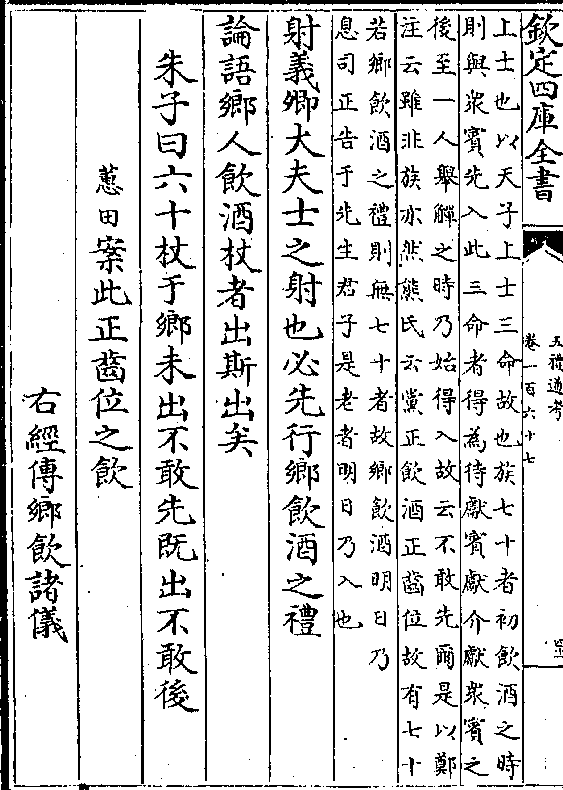 欽定四庫全書
五禮通考
卷一百六十七
上士也以天子上士三命故也族七十者初飲酒之時
則與衆賓先入此三命者得為待獻賓獻介獻衆賓之
後至一人舉觶之時乃始得入故云不敢先爾是以鄭
注云雖非族亦然熊氏云黨正飲酒正齒位故有七十
若鄉飲酒之禮則無七十者故鄉飲酒明日乃
息司正告于先生君子是老者明日乃入也
射義卿大夫士之射也必先行鄉飲酒之禮
論語鄉人飲酒杖者出斯出矣
朱子曰六十杖于鄉未出不敢先既出不敢後
蕙田案此正齒位之飲
右經傳鄉飲諸儀